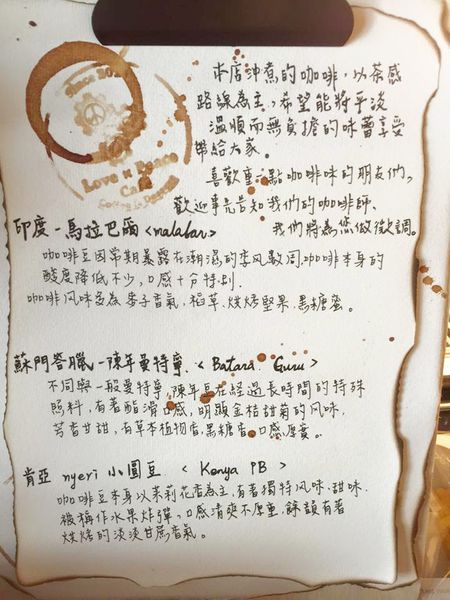 Since 20
Love & Peace
Cafe
本店沖煮的咖啡，以茶感
路線為主，希望能將平淡
溫順而無負擔的味蕾享受
帶給大家。
喜歡重一點咖啡味的朋友們，
歡迎事先告知我們的咖啡師，
我們將為您做微調。
印度-馬拉巴爾<malabar>
咖啡豆因常期暴露在潮濕的季风數周，咖啡本身的
酸度降低不少，口感十分特別。
咖啡风味多為麥子香氣，稻草、烘烤堅果、黑糖蜜。
蘇門答臘-陳年曼特寧.<Batara Guru>
不同與一般曼特寧，陳年豆在經過長時間的特殊
照料，有著酯滑口感，明顯金桔甜菊的风味.
芳香甘甜，有草本植物香,黑糖香,口感厚實。
肯亞 nyeri 小圓豆 <Kenya PB>
咖啡豆本身以茉莉花香為主，有著獨特风味.甜味.
被稱作水果炸彈，口感清爽不厚重，餘韻有著
烘烤的淡淡甘蔗香氣。